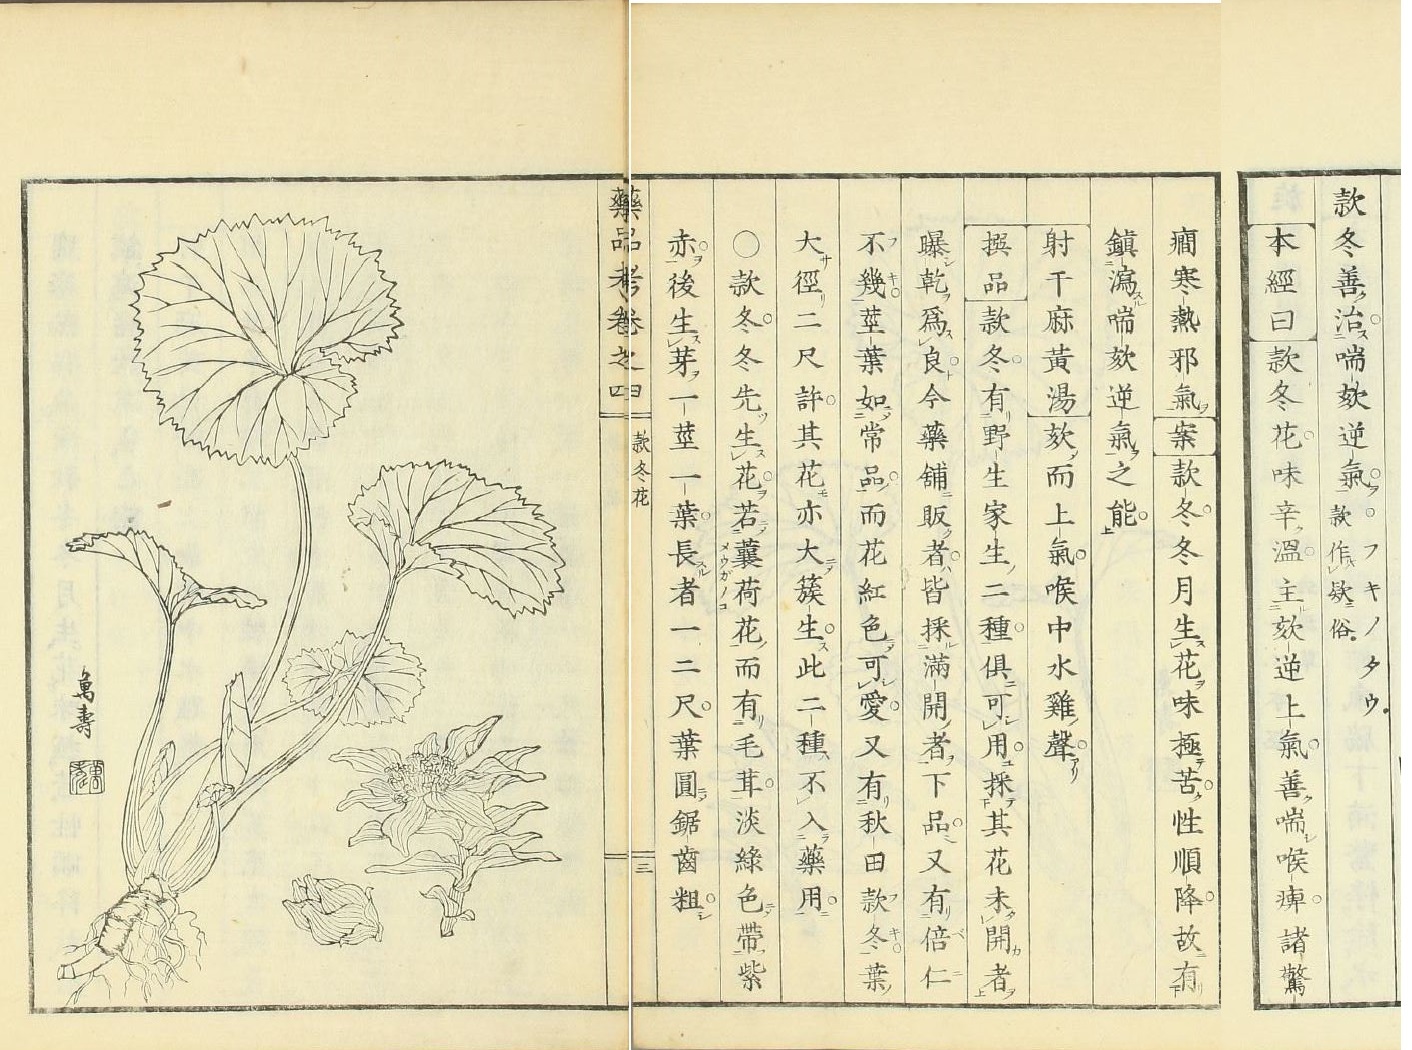 款冬善治喘欬逆氣。款作欵俗。フキノタウ.
本經曰款冬花味辛溫主欬逆上氣善喘喉痺諸驚
癇寒熱邪氣案款冬冬月生花味極苦性順降故有
鎮瀉喘欬逆氣之能
射干麻黃湯欬而上氣喉中水雞聲
撰品款冬有野生家生二種俱可用採其花未開者
曝乾爲良今藥舖販者皆採滿開者下品又有倍仁
不幾莖葉如常品而花紅色可愛又有秋田款冬葉
大徑二尺許其花亦大簇生此二種不入藥用
○款冬冬先生花若蘘荷花而有毛茸淡綠色帶紫
メウガノコ
赤後生芽一莖一葉長者一二尺葉圓鋸齒粗
藥品考卷之四
款冬花
三
萬壽